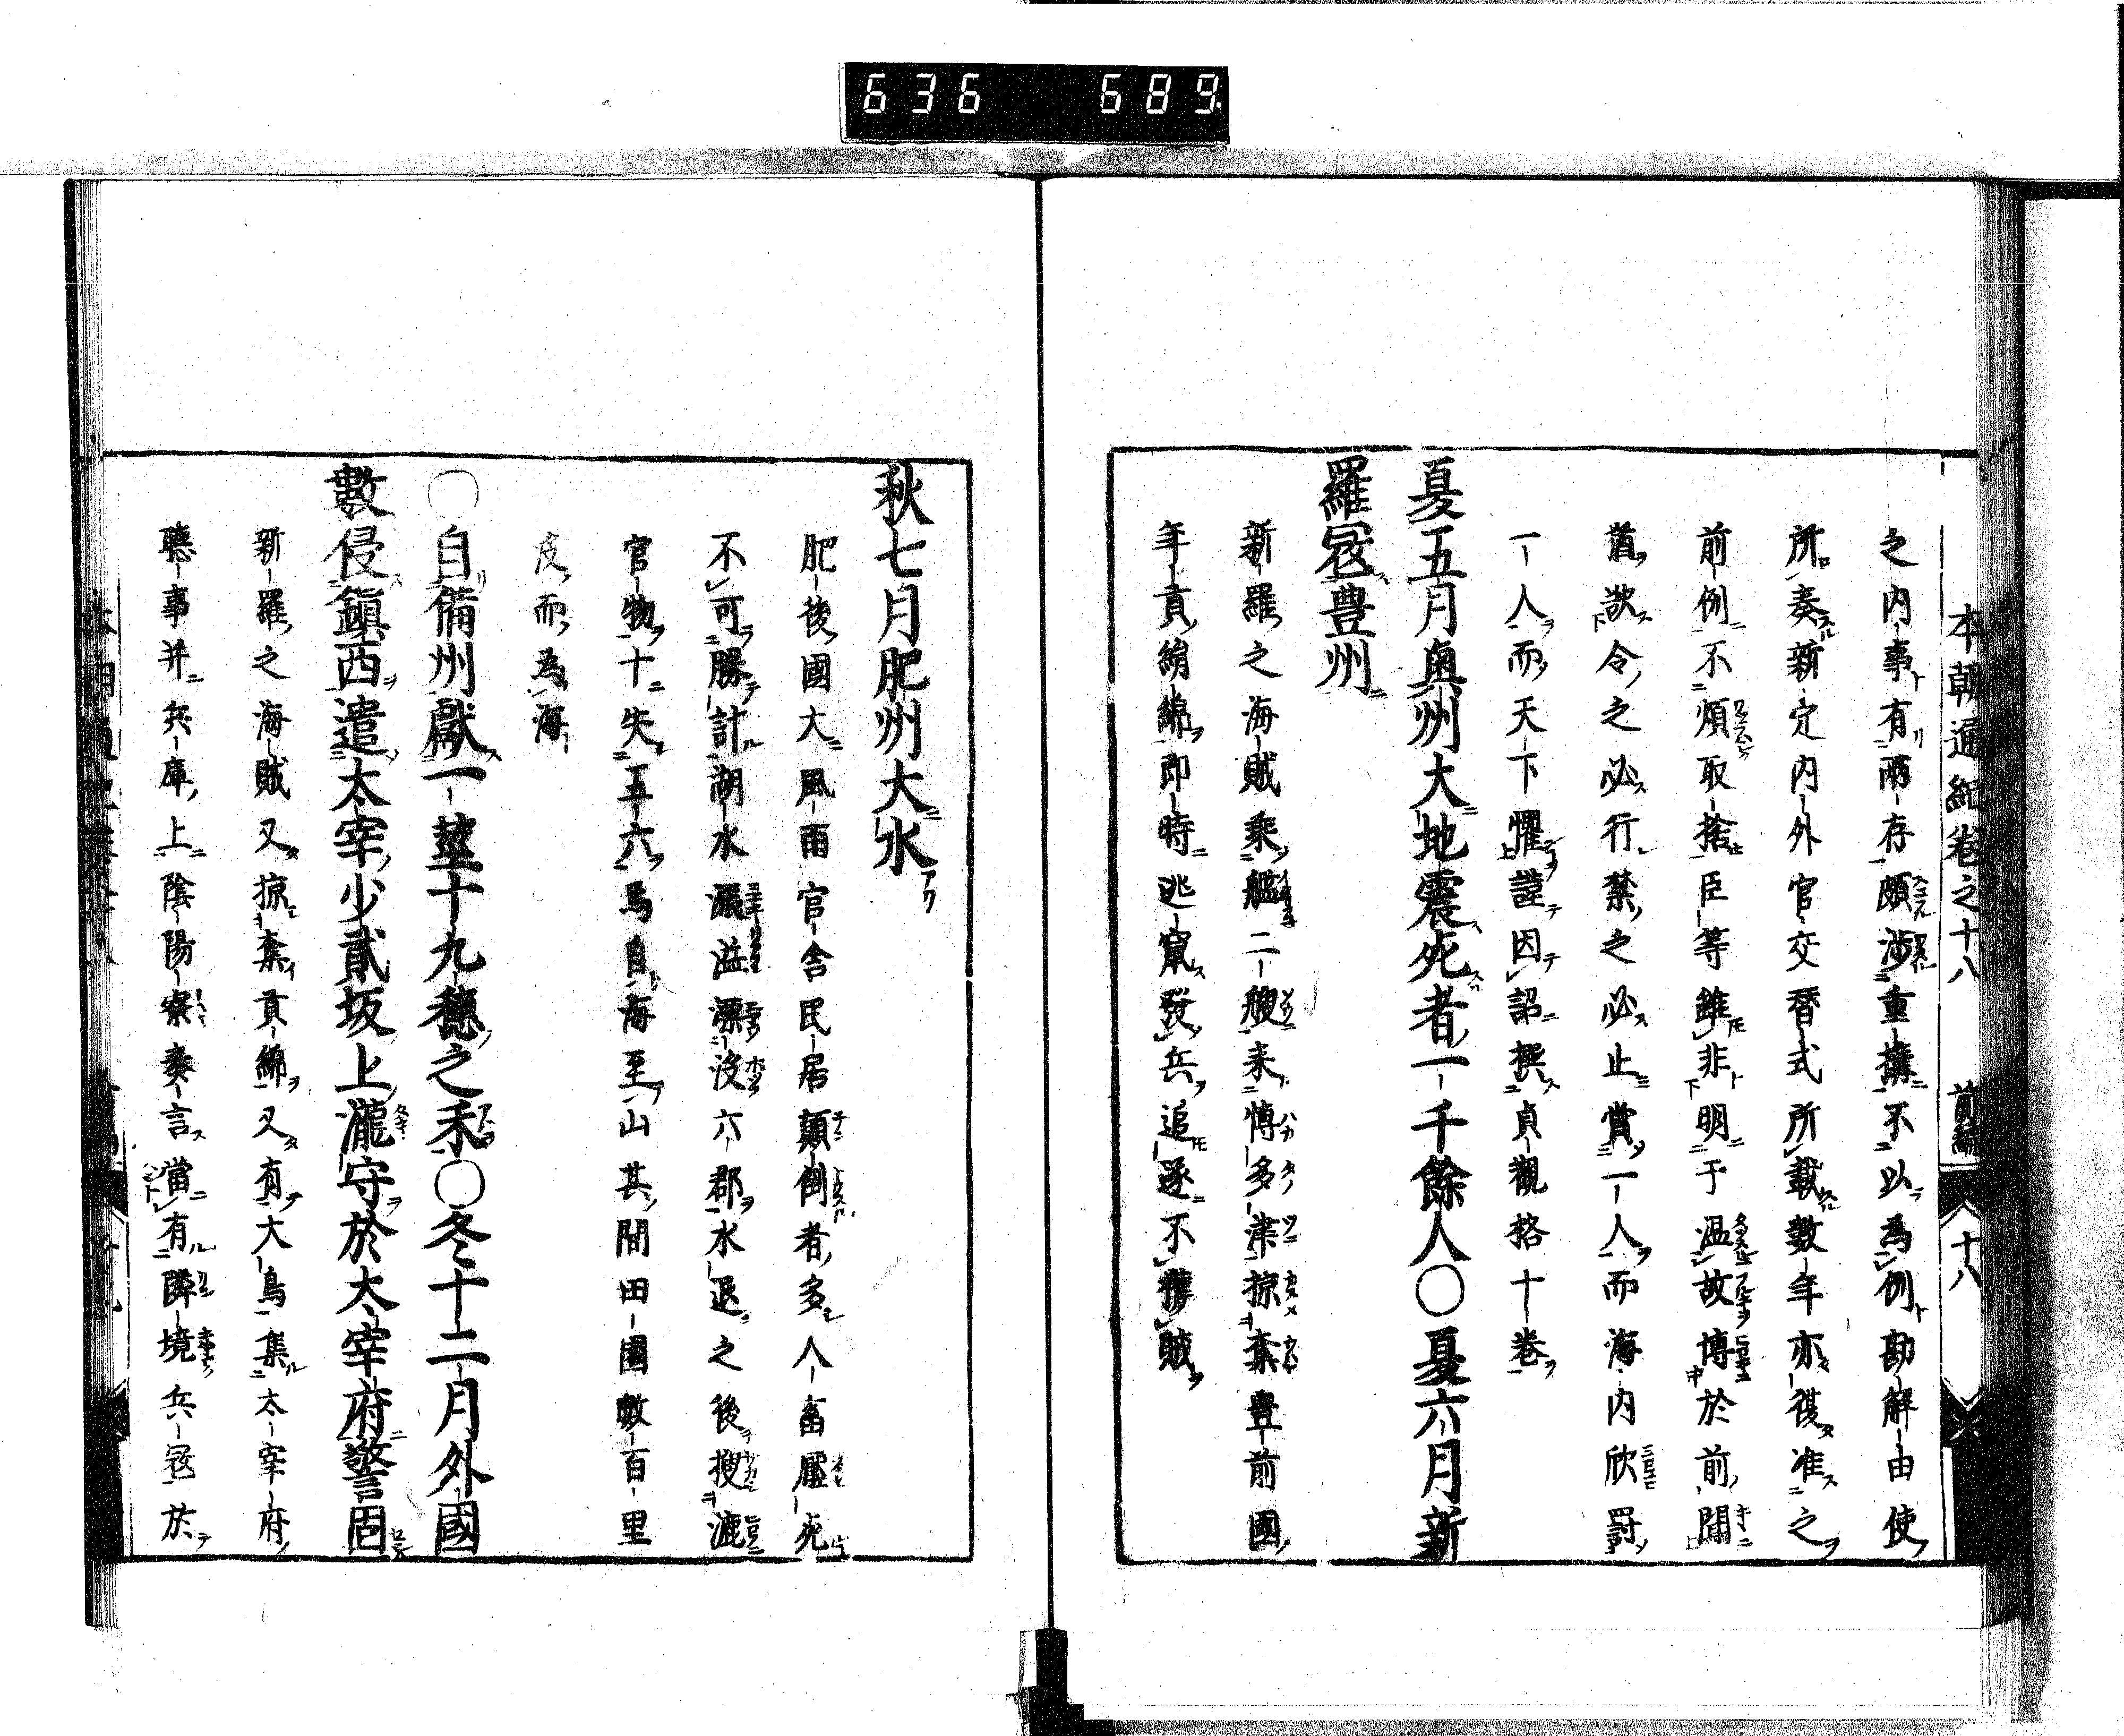 636 689
本朝通紀卷之十八 前編 十八
之内事有兩存頗渉重搆不以為例勘解由使
所奏新定内外官交替式所載數年亦復准之
前例不煩取捨臣等雖非明于温故博於前聞
猶欲令之必行禁之必止賞一人而海内欣罸
一人而天下懼謹因詔撰貞觀格十卷
夏五月奥州大地震死者一千餘人〇夏六月新
羅冦豊州
新羅之海賊乘艦二艘来博多津掠奪豊前國
年貢絹綿即時逃竄發兵追逐不獲賊
秋七月肥州大水
肥後國大風雨官舎民居顛倒者多人畜壓死
不可勝計湖水漲溢漂沒六郡水退之後搜漉
官物十失五六焉自海至山其間田園數百里
皮而為海
〇自備州獻一莖十九穗之禾〇冬十二月外國
數侵鎮西遣太宰少貳坂上瀧守於太宰府警固
新羅之海賊又掠奪貢綿又有大鳥集太宰府
聴事并兵庫上陰陽寮奏言當有隣境兵冦於